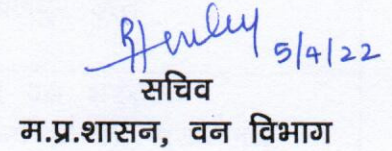 5/4/22
सचिव
म.प्र.शासन, वन विभाग